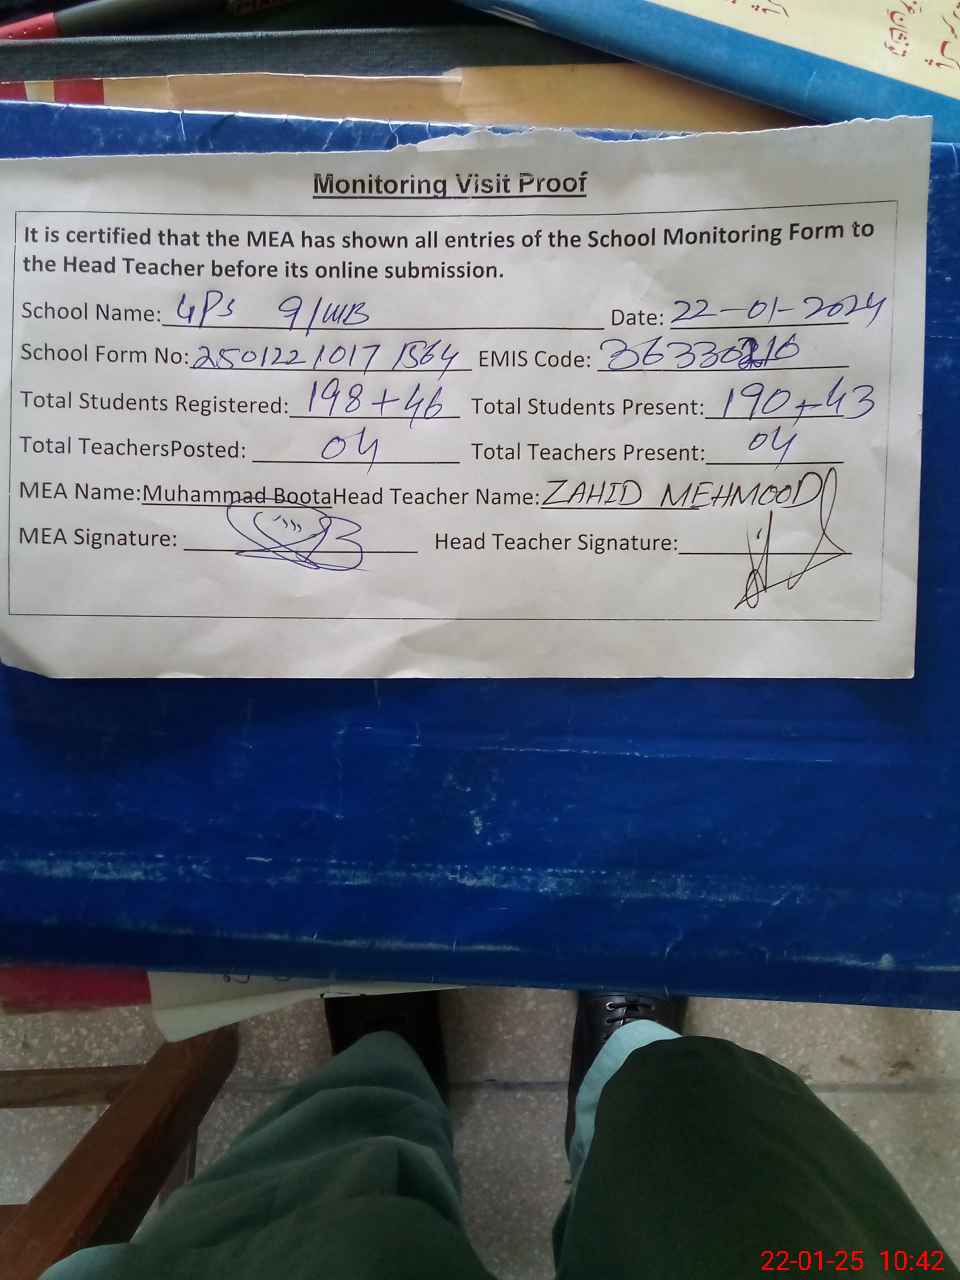 Monitoring Visit Proof
It is certified that the MEA has shown all entries of the School Monitoring Form to
the Head Teacher before its online submission.
School Name: GPS 9/WB Date: 22-01-2024
School Form No: 250122 1017 1564 EMIS Code: 36330216
Total Students Registered: 198+46 Total Students Present: 190+43
Total TeachersPosted: 04 Total Teachers Present: 04
MEA Name:Muhammad BootaHead Teacher Name: ZAHID MEHMOOD
MEA Signature: Head Teacher Signature:
22-01-25 10:42